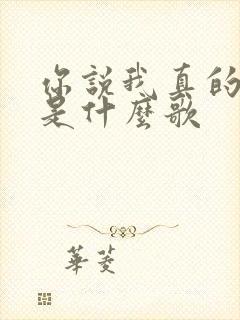 你說我真的
是什麼歌
華菱